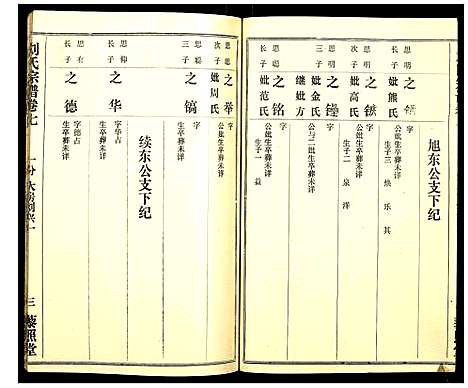 旭东公支下纪
思明
长子
之
妣熊氏
字
公妣生卒葬未详
生子三 焕 乐 其
思明
次子
之
妣高氏
字
公妣生卒葬未详
生子二 泉 洋
思明
三子
之
妣金氏
继妣方
字
公与二妣生卒葬未详
思聪
长子
之铭
妣范氏
字
公妣生卒葬未详
生子一 益
思聪
次子
之举
妣周氏
字
公妣生卒葬未详
思聪
三子
之镐
字
生卒葬未详
续东公支下纪
思仰
长子
之华
字华占
生卒葬未详
思有
长子
之德
字德占
生卒葬未详
刘氏宗谱卷七
三
藜照堂